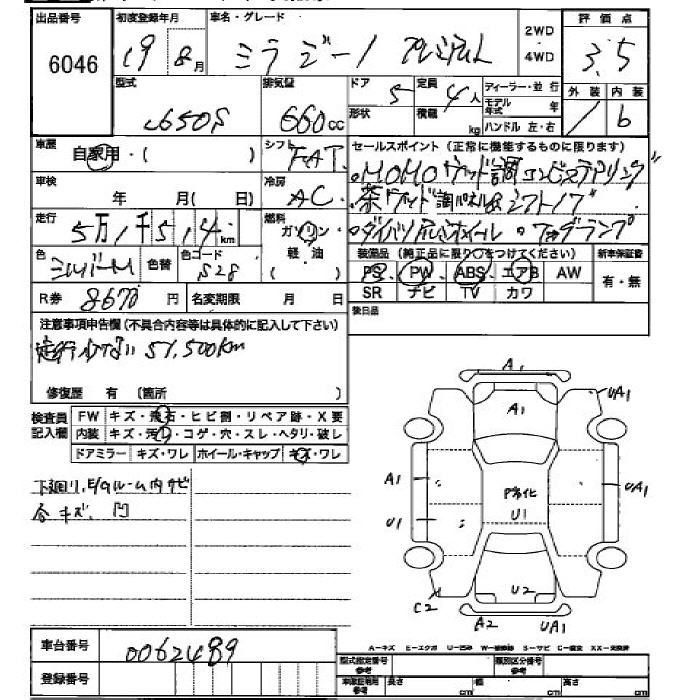 出品番号 初度登録年月 車名・グレード 2WD ・ 4WD 評価点
6046 19 8月 ミラジーノ プレミアム 3.5
型式 排気量 ドア 定員 ディーラー・並行 外装 内装
L650S 660cc 5 4人 モデル年式 年 / b
形状 積載 kg ハンドル 左・右
車歴 自家用・( ) シフト FAT セールスポイント(正常に機能するものに限ります)
車検 年 月( 日) 冷房 AC
走行 5万1千514km 燃料 ガソリン・軽油
色 シルバーM 色替 色コード S28 装備品(純正品に限り○をつけてください) 新車保証書
PS PW ABS エアB AW 有・無
SR ナビ TV カワ
R券 8670円 名変期限 月 日 後日品
注意事項申告欄(不具合内容等は具体的に記入して下さい)
51,500Km
修復歴 有 (箇所 )
検査員記入欄 FW キズ・飛石・ヒビ割・リペア跡・X要
内装 キズ・汚れ・コゲ・穴・スレ・ヘタリ・破レ
ドアミラー キズ・ワレ ホイール・キャップ キズ・ワレ
下廻リ、E/Gルーム内サビ
各キズ、凹
A1
A1 UA1
A1 UA1
U1 U1
U2
C2 A2 UA1
車台番号 0062489
登録番号
A-キズ E-エクボ U-凹み S-サビ
型式指定番号 参考 類別区分番号 参考
長さ cm 幅 cm 高さ cm